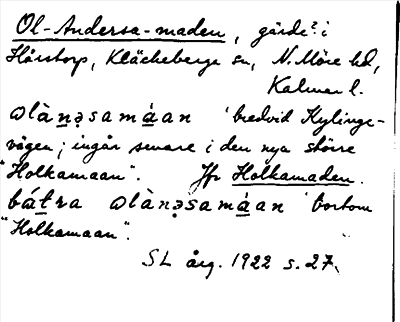 Ol-Andersa-maden, gärde? i
Hårstorp, Kläckeberga sn, N. Möre hd,
Kalmar l.
ɷlàn̲ə̲samá̲an ' bredvid Kylinge-
vägen; ingår senare i den nya större
"Holkamaan". Jfr Holkamaden.
bá̲t̲ra ɷlàn̲ə̲samá̲an ' bortom
"Holkamaan".
SL årg. 1922 s. 27.